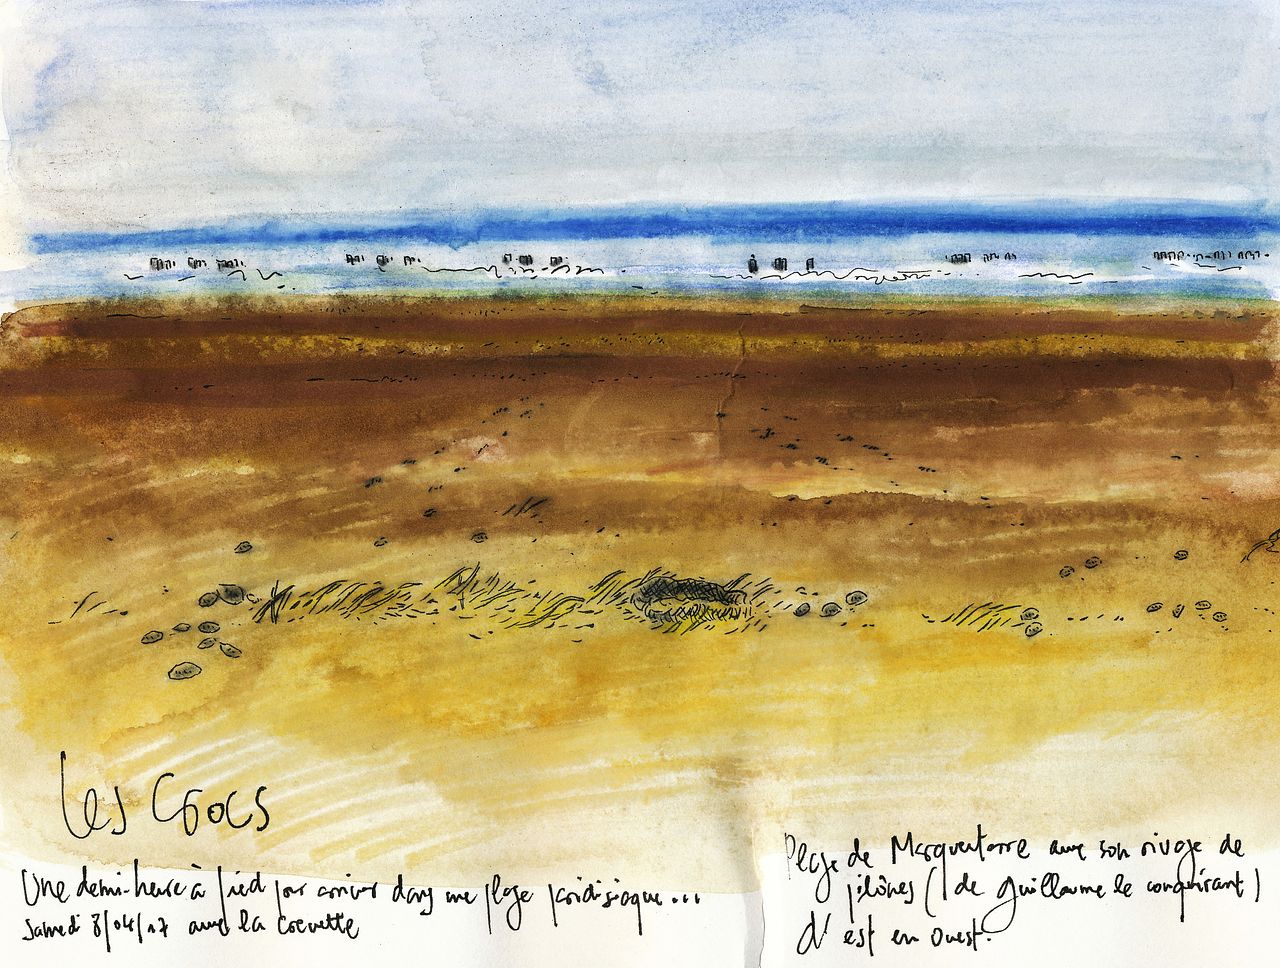 Les Crocs
Une demi-heure à pied pour arriver dans une plage paridisiaque...
Samedi 8/04/17 avec la Crevette
Plage de Marquenterre avec son rivage de
pilônes (de Guillaume le conquérant)
d'est en ouest.